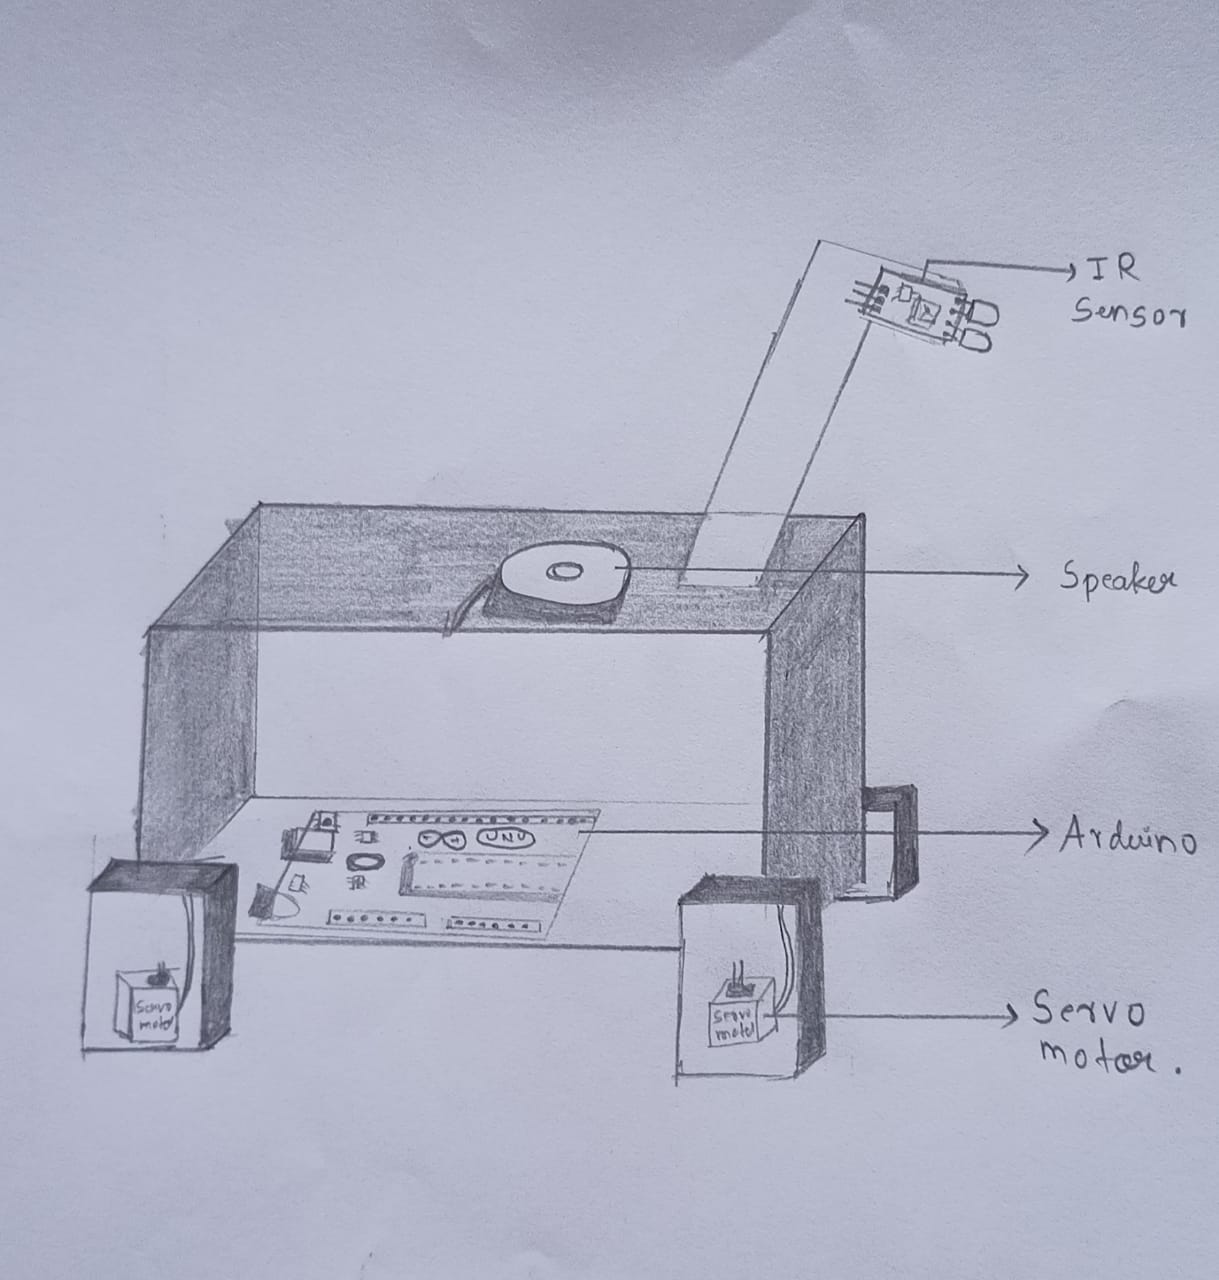 IR
Sensor
Speaker
UNO
Arduino
Servo
motor
Servo
motor
Servo
motor.